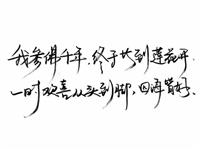 我参佛千年，终于出到莲花开
一时欢喜从头到脚，回海皆好